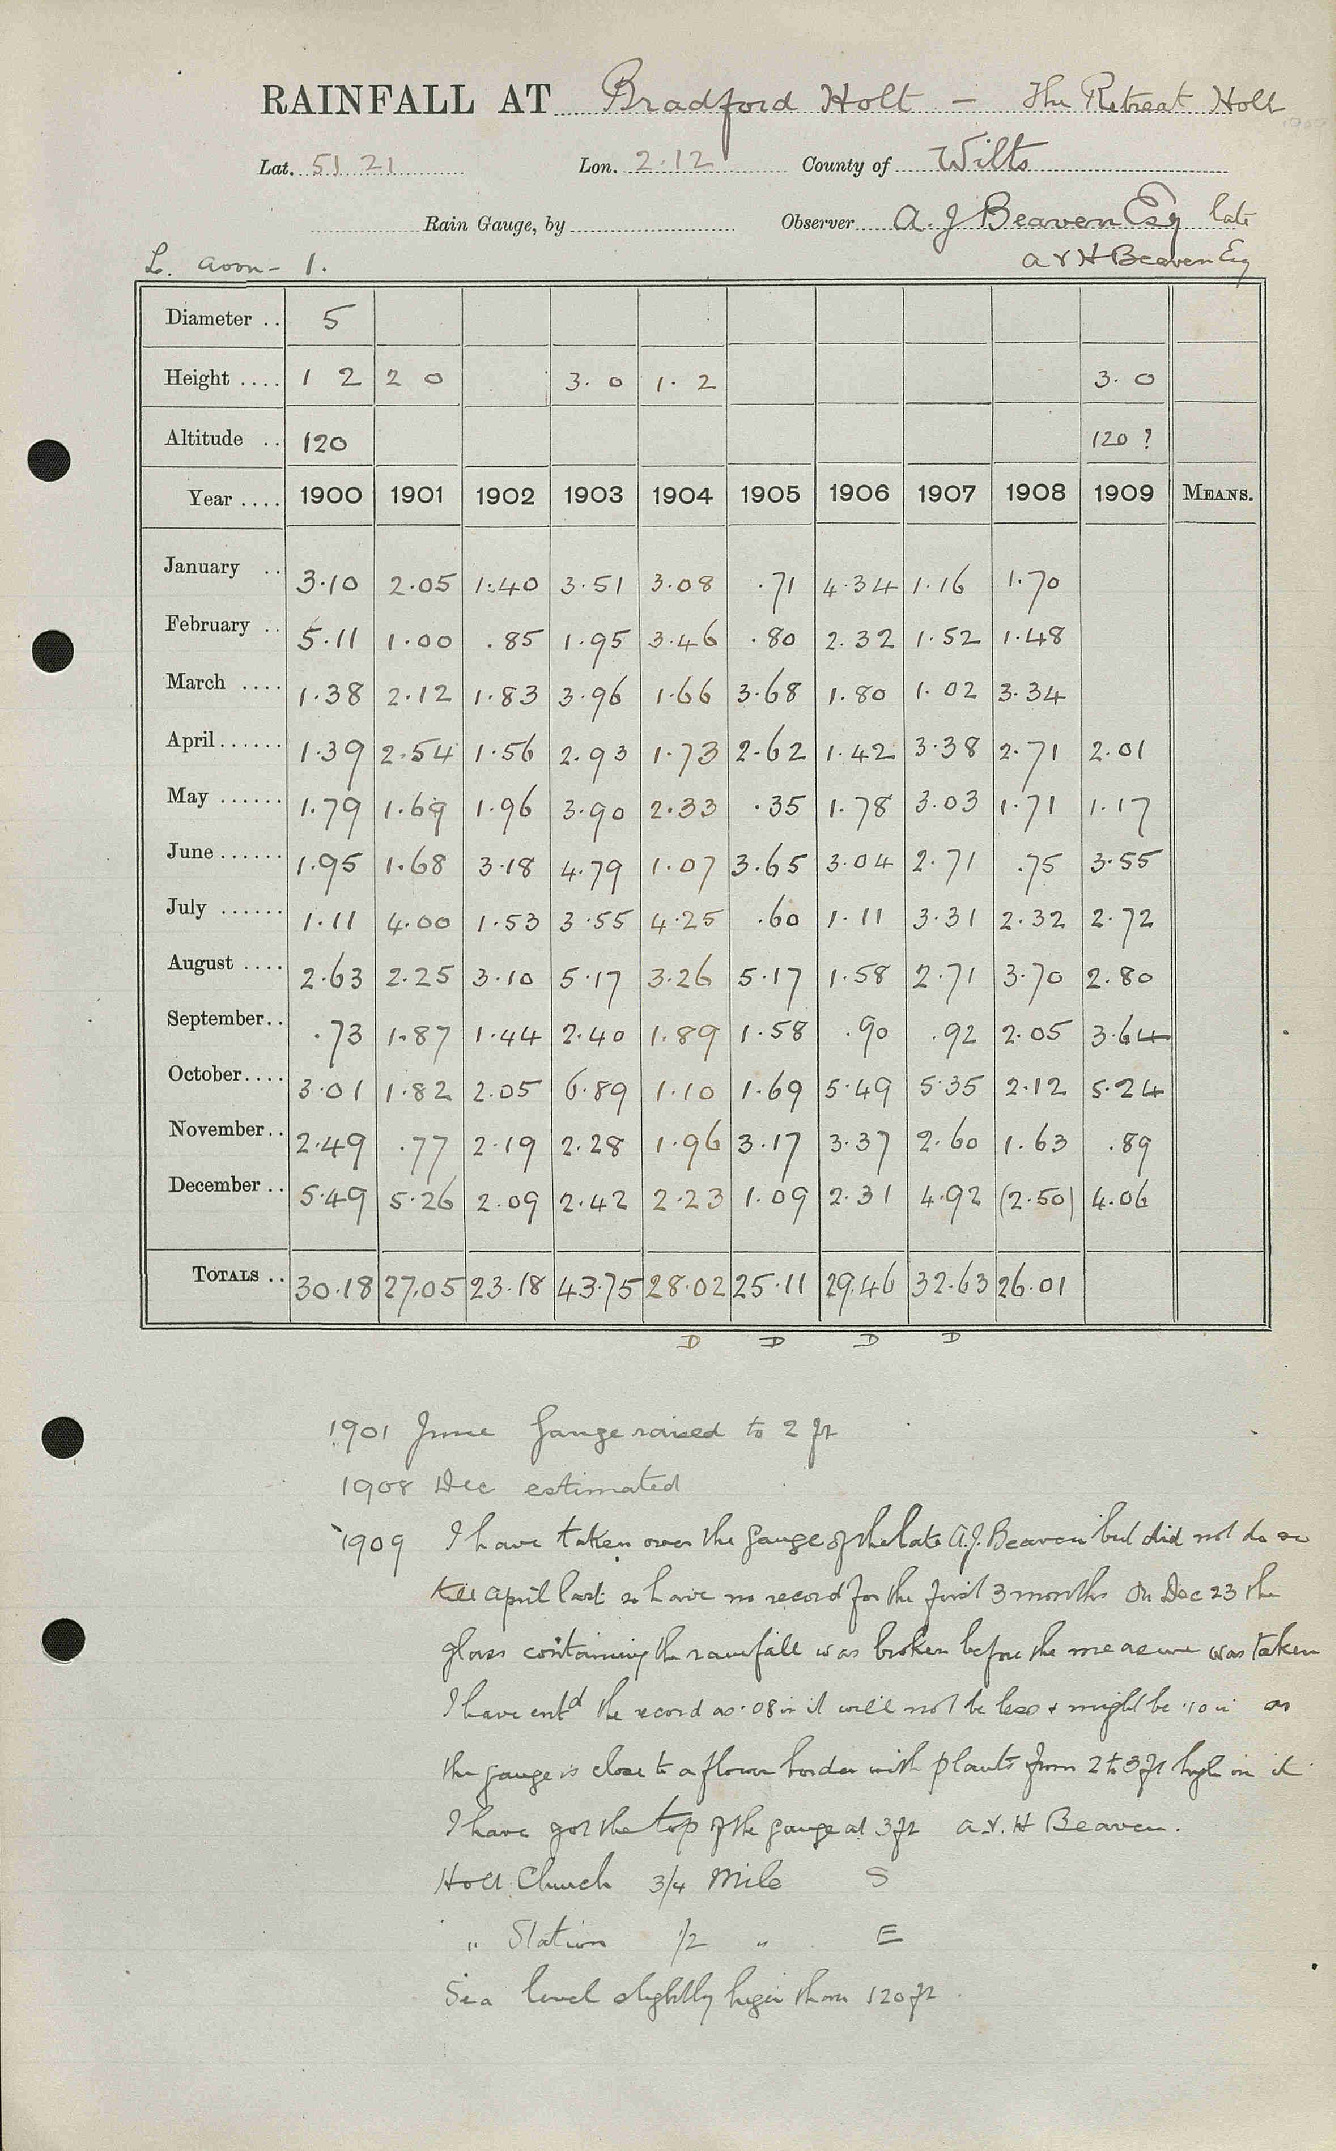 RAINFALL AT Bradford Holt - The Retreat Holt
Lat. 51 21 Lon. 2.12 County of Wilts
Rain Gauge, by Observer A. J Beaven Esq late
L. Avon - 1. A & H Beaven Esq
Diameter .. 5
Height .... 1 2 2 0 3. 0 1. 2 3. 0
Altitude .. 120 120 ?
Year .... 1900 1901 1902 1903 1904 1905 1906 1907 1908 1909 MEANS.
January .. 3.10 2.05 1.40 3.51 3.08 .71 4.34 1.16 1.70
February .. 5.11 1.00 .85 1.95 3.46 .80 2.32 1.52 1.48
March .... 1.38 2.12 1.83 3.96 1.66 3.68 1.80 1.02 3.34
April ...... 1.39 2.54 1.56 2.93 1.73 2.62 1.42 3.38 2.71 2.01
May ...... 1.79 1.69 1.96 3.90 2.33 .35 1.78 3.03 1.71 1.17
June ...... 1.95 1.68 3.18 4.79 1.07 3.65 3.04 2.71 .75 3.55
July ...... 1.11 4.00 1.53 3.55 4.25 .60 1.11 3.31 2.32 2.72
August .... 2.63 2.25 3.10 5.17 3.26 5.17 1.58 2.71 3.70 2.80
September.. .73 1.87 1.44 2.40 1.89 1.58 .90 .92 2.05 3.64
October.... 3.01 1.82 2.05 6.89 1.10 1.69 5.49 5.35 2.12 5.24
November.. 2.49 .77 2.19 2.28 1.96 3.17 3.37 2.60 1.63 .89
December .. 5.49 5.26 2.09 2.42 2.23 1.09 2.31 4.92 (2.50) 4.06
TOTALS .. 30.18 27.05 23.18 43.75 28.02 25.11 29.46 32.63 26.01
D D D D
1901 June Gauge raised to 2 ft
1908 Dec estimated
1909 I have taken over the gauge of the late A.J. Beaven but did not do so
till April last so have no record for the first 3 months On Dec 23 the
glass containing the rainfall was broken before the measure was taken
I have entd the record as .08 in it will not be less & might be .10 in as
the gauge is close to a flower border with plants from 2 to 3 ft high in it
I have got the top of the gauge at 3 ft A & H Beaven.
Holt Church 3/4 Mile S
" Station 1/2 " E
Sea level slightly higer than 120 ft